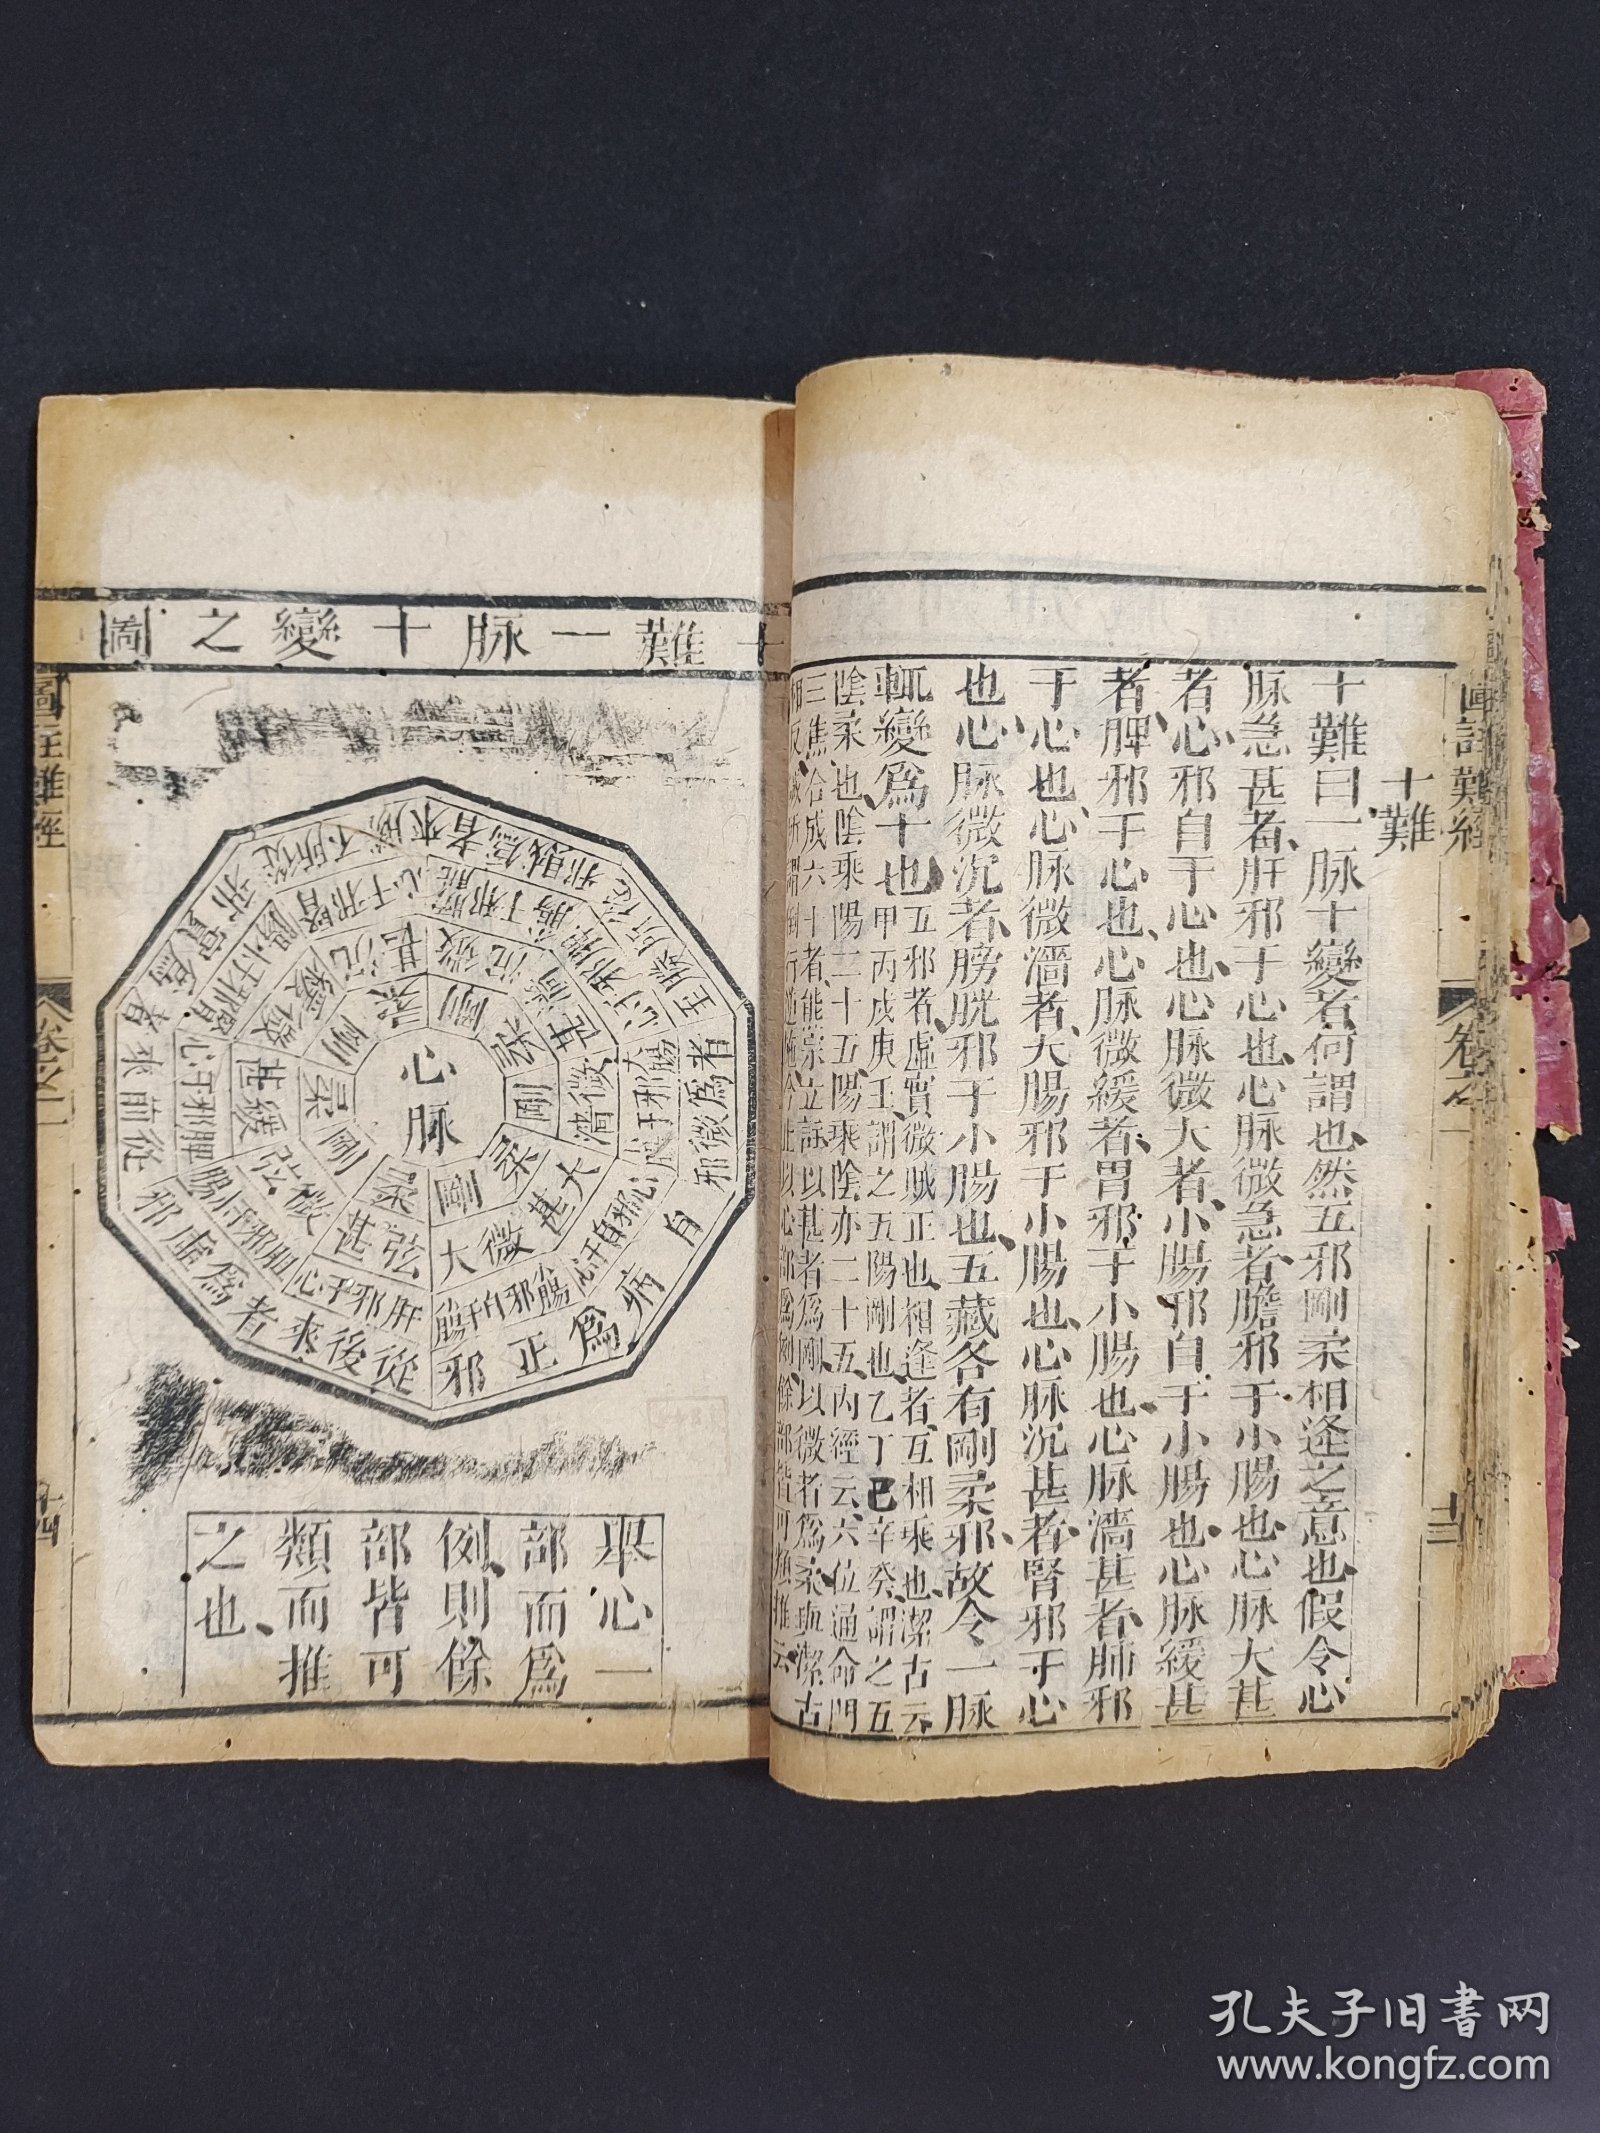 圖註難經
卷之一
十三
十難
十難曰一脉十變者何謂也然五邪剛柔相逢之意也假令心
脉急甚者肝邪干心也心脉微急者膽邪干小腸也心脉大甚
者心邪自干心也心脉微大者小腸邪自干小腸也心脉緩甚
者脾邪干心也心脉微緩者胃邪干小腸也心脉濇甚者肺邪
干心也心脉微濇者大腸邪干小腸也心脉沉甚者腎邪干心
也心脉微沉者膀胱邪干小腸也五藏各有剛柔邪故令一脉
輒變爲十也
五邪者虛實微賊正也相逢者互相乘也潔古云
甲丙戊庚壬謂之五陽剛也乙丁己辛癸謂之五
陰柔也陰乘陽二十五陽乘陰亦二十五內徑云六位通命門
三焦合成六十者能宗立註以甚者爲剛以微者爲柔珎潔古
十難一脉十變之圖
心脉
剛
柔
大
微
大甚
弦甚
微弦
緩甚
微緩
沉甚
微沉
濇甚
微濇
肝邪干心
心邪自干心
脾邪干心
腎邪干小腸
自病爲正邪
從後來者爲虛邪
從前來者爲實邪
者爲微邪
舉心一
部而爲
例則餘
部皆可
類而推
之也
圖註難經
卷之一
十四
孔夫子旧书网
www.kongfz.com